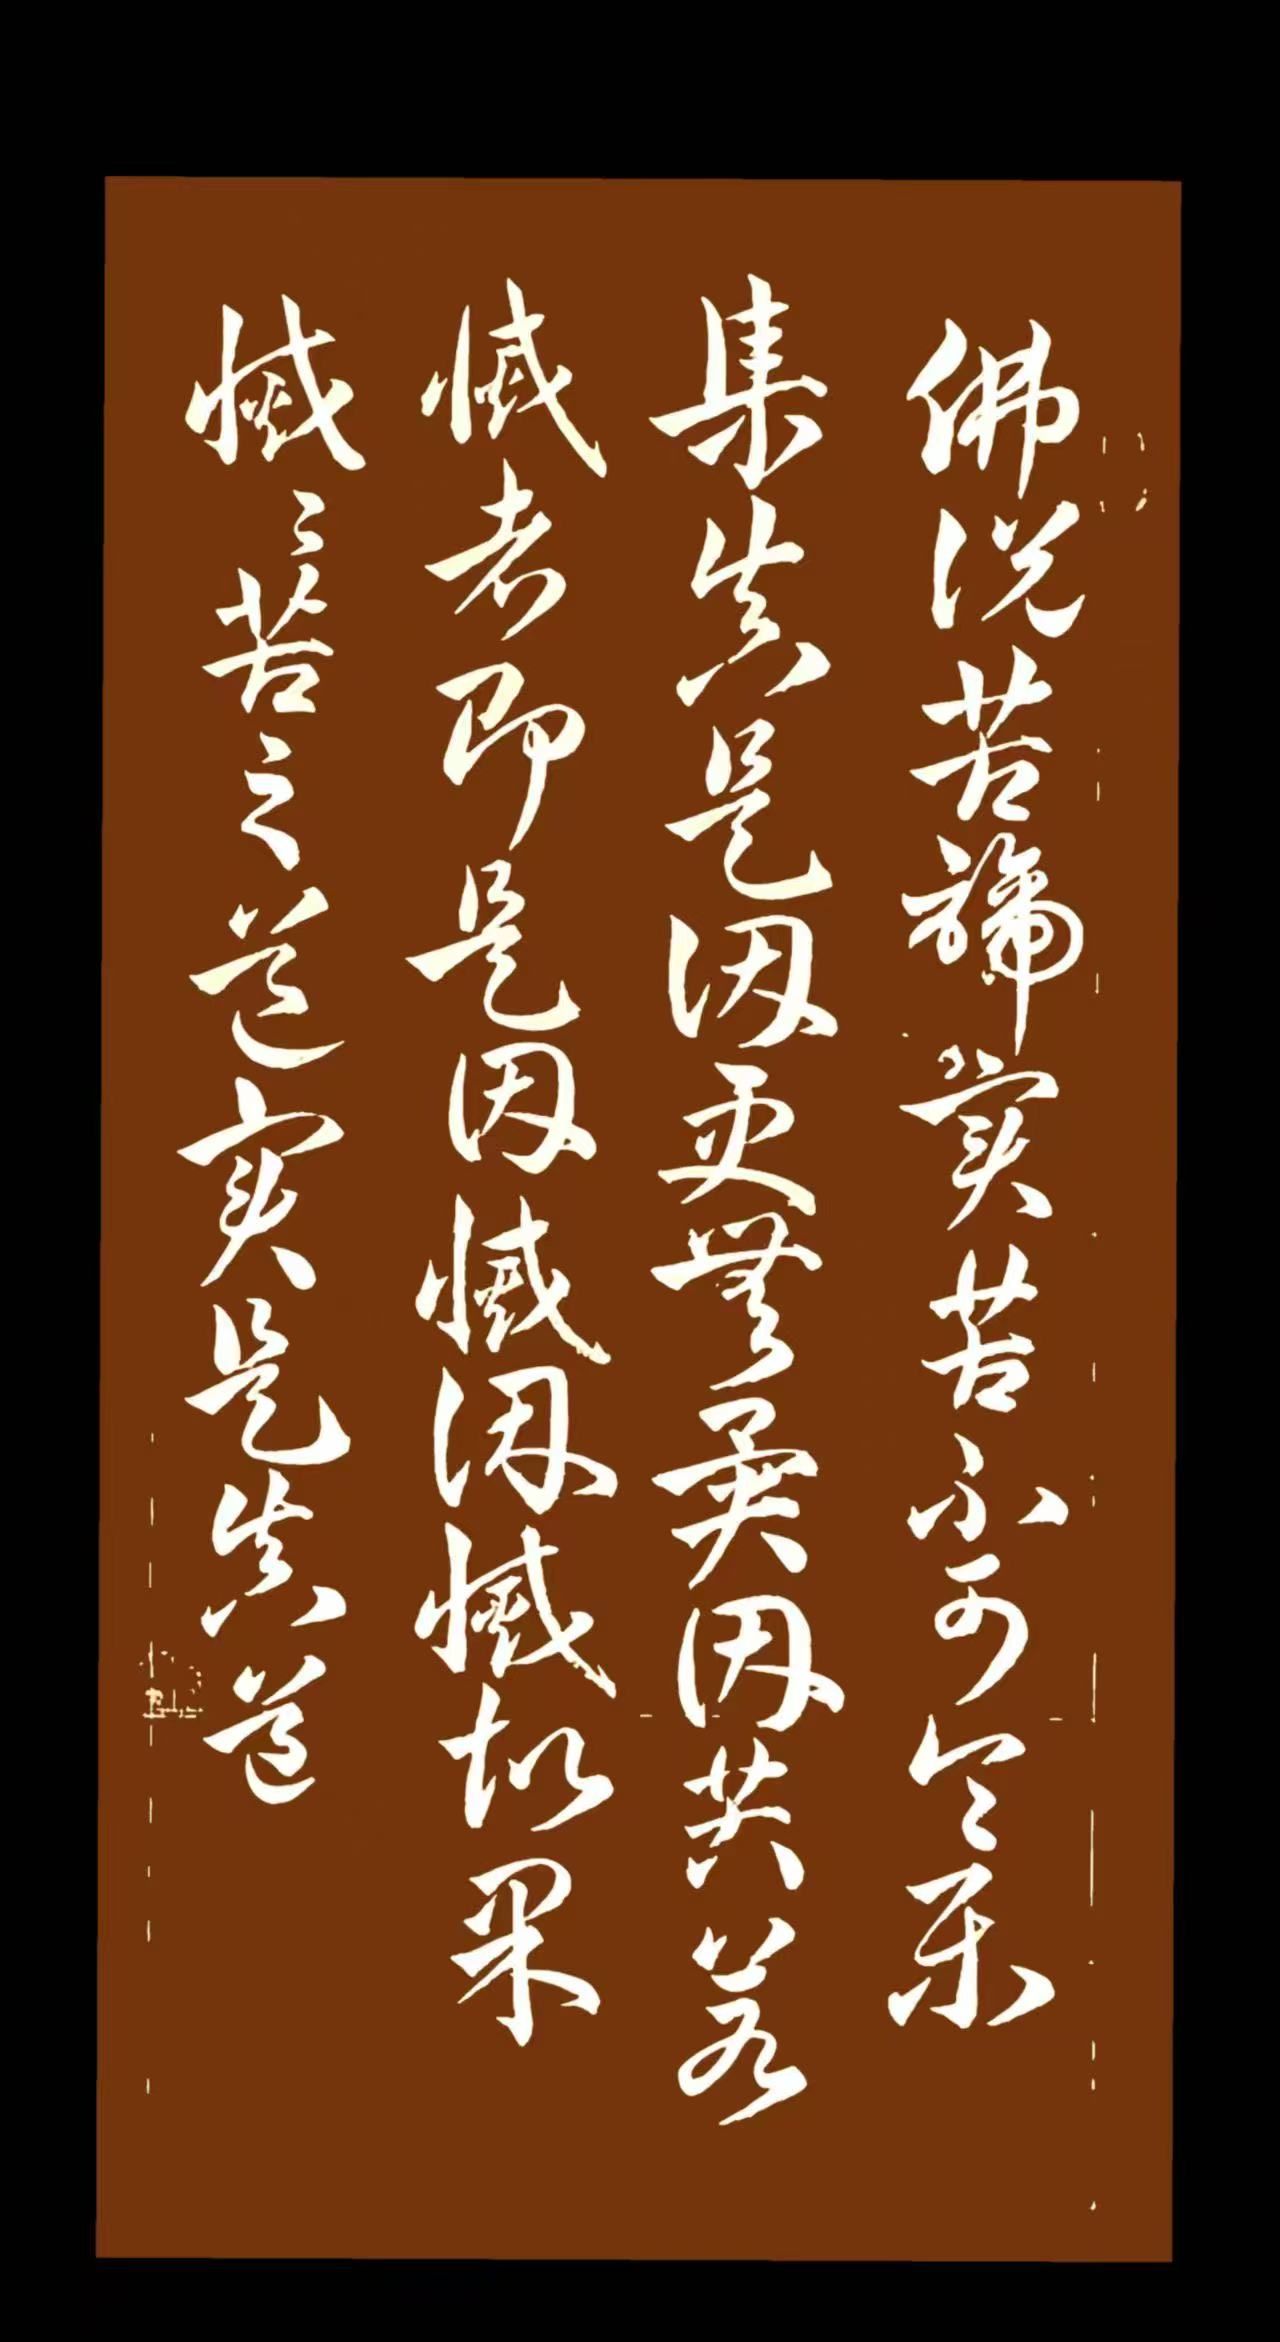 佛說苦諦實苦不可令樂
集真是因更無異因苦若
滅者即是因滅因滅故果
滅々苦之道實是真道